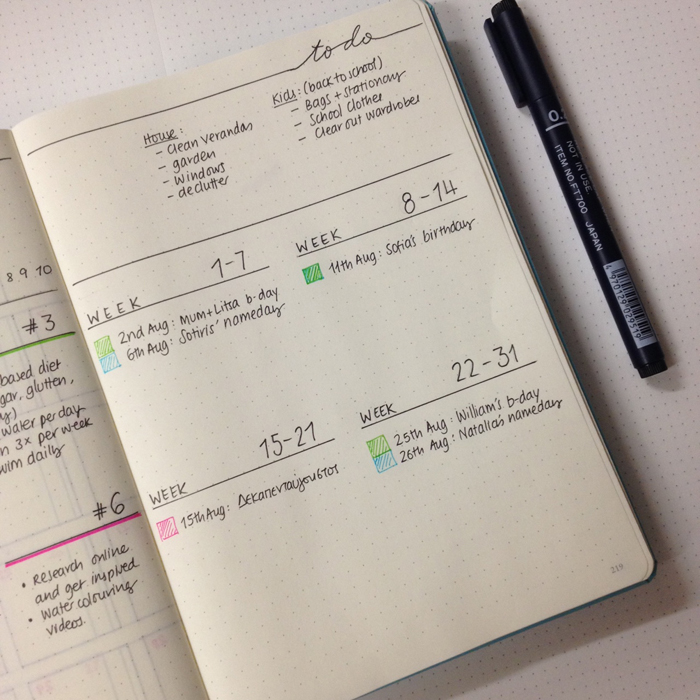 8 9 10
#3
based diet
gar, glutten,
y)
water per day
n 3x per week
wim daily
#6
• Research online
and get inspired
• Water colouring
videos.
to do
House:
- Clean verandas
- garden
- Windows
- declutter
Kids: (back to school)
- Bags + stationary
- School clothes
- Clear out wardrobes
WEEK 1-7
2nd Aug: Mum+Litsa b-day
6th Aug: Sotiris' nameday
WEEK 8-14
11th Aug: Sofia's birthday
WEEK 15-21
15th Aug: Δεκαπενταύγουστος
WEEK 22-31
25th Aug: William's b-day
26th Aug: Natalia's nameday
219
0.
NOT IN USE
ITEM NO.FT 700 JAPAN
4 970129 029519